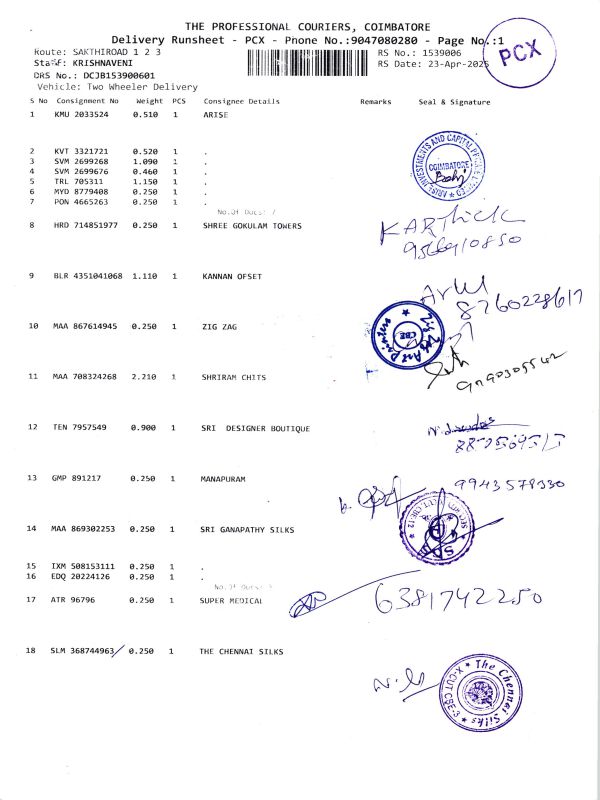 THE PROFESSIONAL COURIERS, COIMBATORE
Delivery Runsheet - PCX - Phone No.:9047080280 - Page No.:1
Route: SAKTHIROAD 1 2 3
RS No.: 1539006
Staff: KRISHNAVENI
RS Date: 23-Apr-2025
PCX
DRS No.: DCJB153900601
Vehicle: Two Wheeler Delivery
S No Consignment No Weight PCS Consignee Details Remarks Seal & Signature
1 KMU 2033524 0.510 1 ARISE
2 KVT 3321721 0.520 1 .
3 SVM 2699268 1.090 1 .
4 SVM 2699676 0.460 1 .
5 TRL 705311 1.150 1 .
6 MYD 8779408 0.250 1 .
7 PON 4665263 0.250 1 .
COIMBATORE
8 HRD 714851977 0.250 1 SHREE GOKULAM TOWERS
KARthick
9 BLR 4351041068 1.110 1 KANNAN OFSET
8760228617
10 MAA 867614945 0.250 1 ZIG ZAG
CBE
11 MAA 708324268 2.210 1 SHRIRAM CHITS
12 TEN 7957549 0.900 1 SRI DESIGNER BOUTIQUE
13 GMP 891217 0.250 1 MANAPURAM
9943578330
14 MAA 869302253 0.250 1 SRI GANAPATHY SILKS
15 IXM 508153111 0.250 1 .
16 EDQ 20224126 0.250 1 .
17 ATR 96796 0.250 1 SUPER MEDICAL
6381742250
18 SLM 368744963 0.250 1 THE CHENNAI SILKS
The Chennai Silks
X-CUT CBE-3